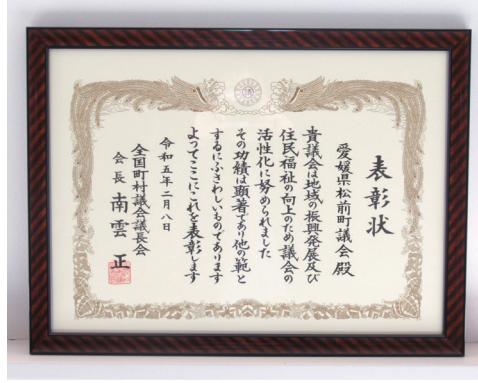 表彰状
愛媛県松前町議会殿
貴議会は地域の振興発展及び
住民福祉の向上のため議会の
活性化に努められました
その功績は顕著であり他の範と
するにふさわしいものであります
よってここにこれを表彰します
令和五年二月八日
全国町村議会議長会
会長 南雲 正